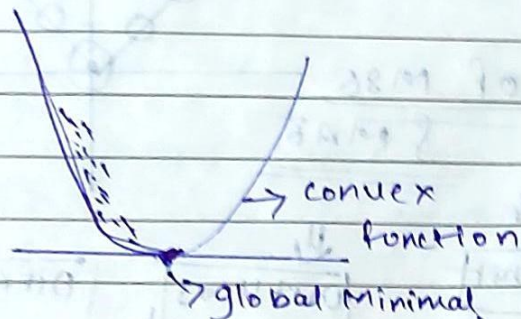 → convex
function
→ global Minimal